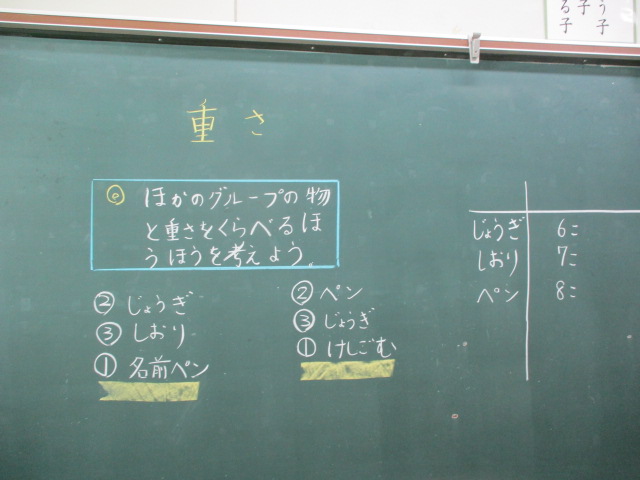 う子
子
る子
重さ
◎ ほかのグループの物
と重さをくらべるほ
うほうを考えよう。
② じょうぎ
③ しおり
① 名前ペン
② ペン
③ じょうぎ
① けしごむ
じょうぎ 6こ
しおり 7こ
ペン 8こ